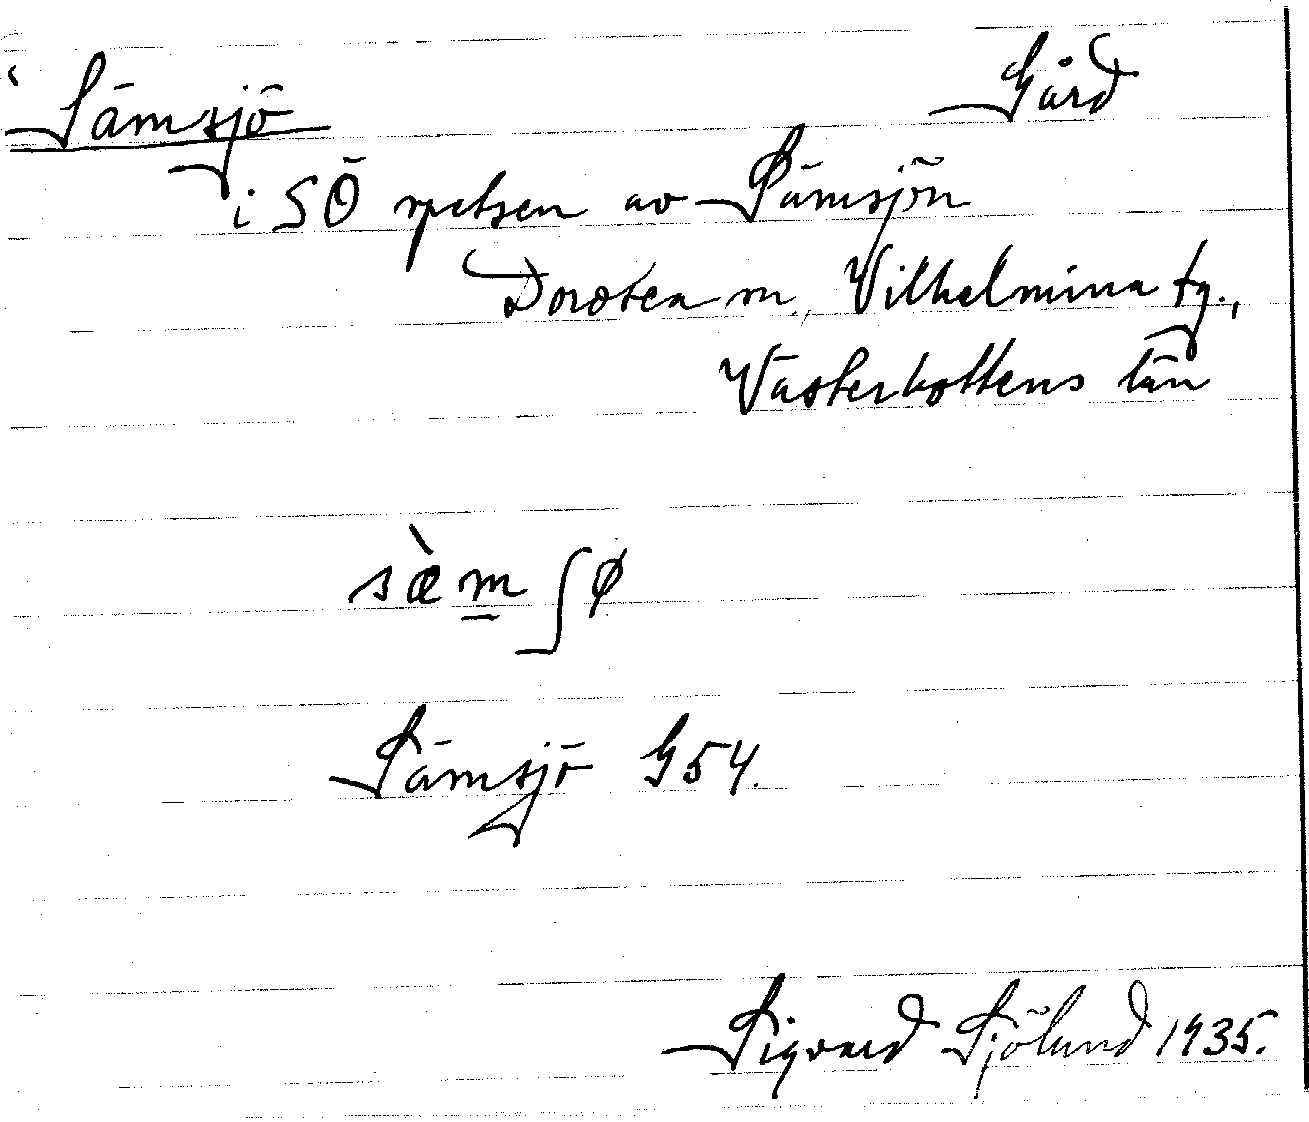 Sämsjö Gård
i SÖ spetsen av Sämsjön
Dorotea m., Vilhelmina tg.,
Västerbottens län
sæ̀m̲ʃø
Sämsjö G54.
Sigvard Sjölund 1935.